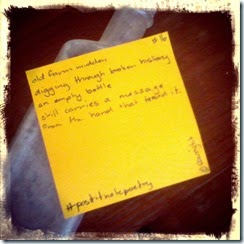 #6
old farm midden
digging through broken history
an empty bottle
still carries a message
from the hand that it.
#postitnotepoetry